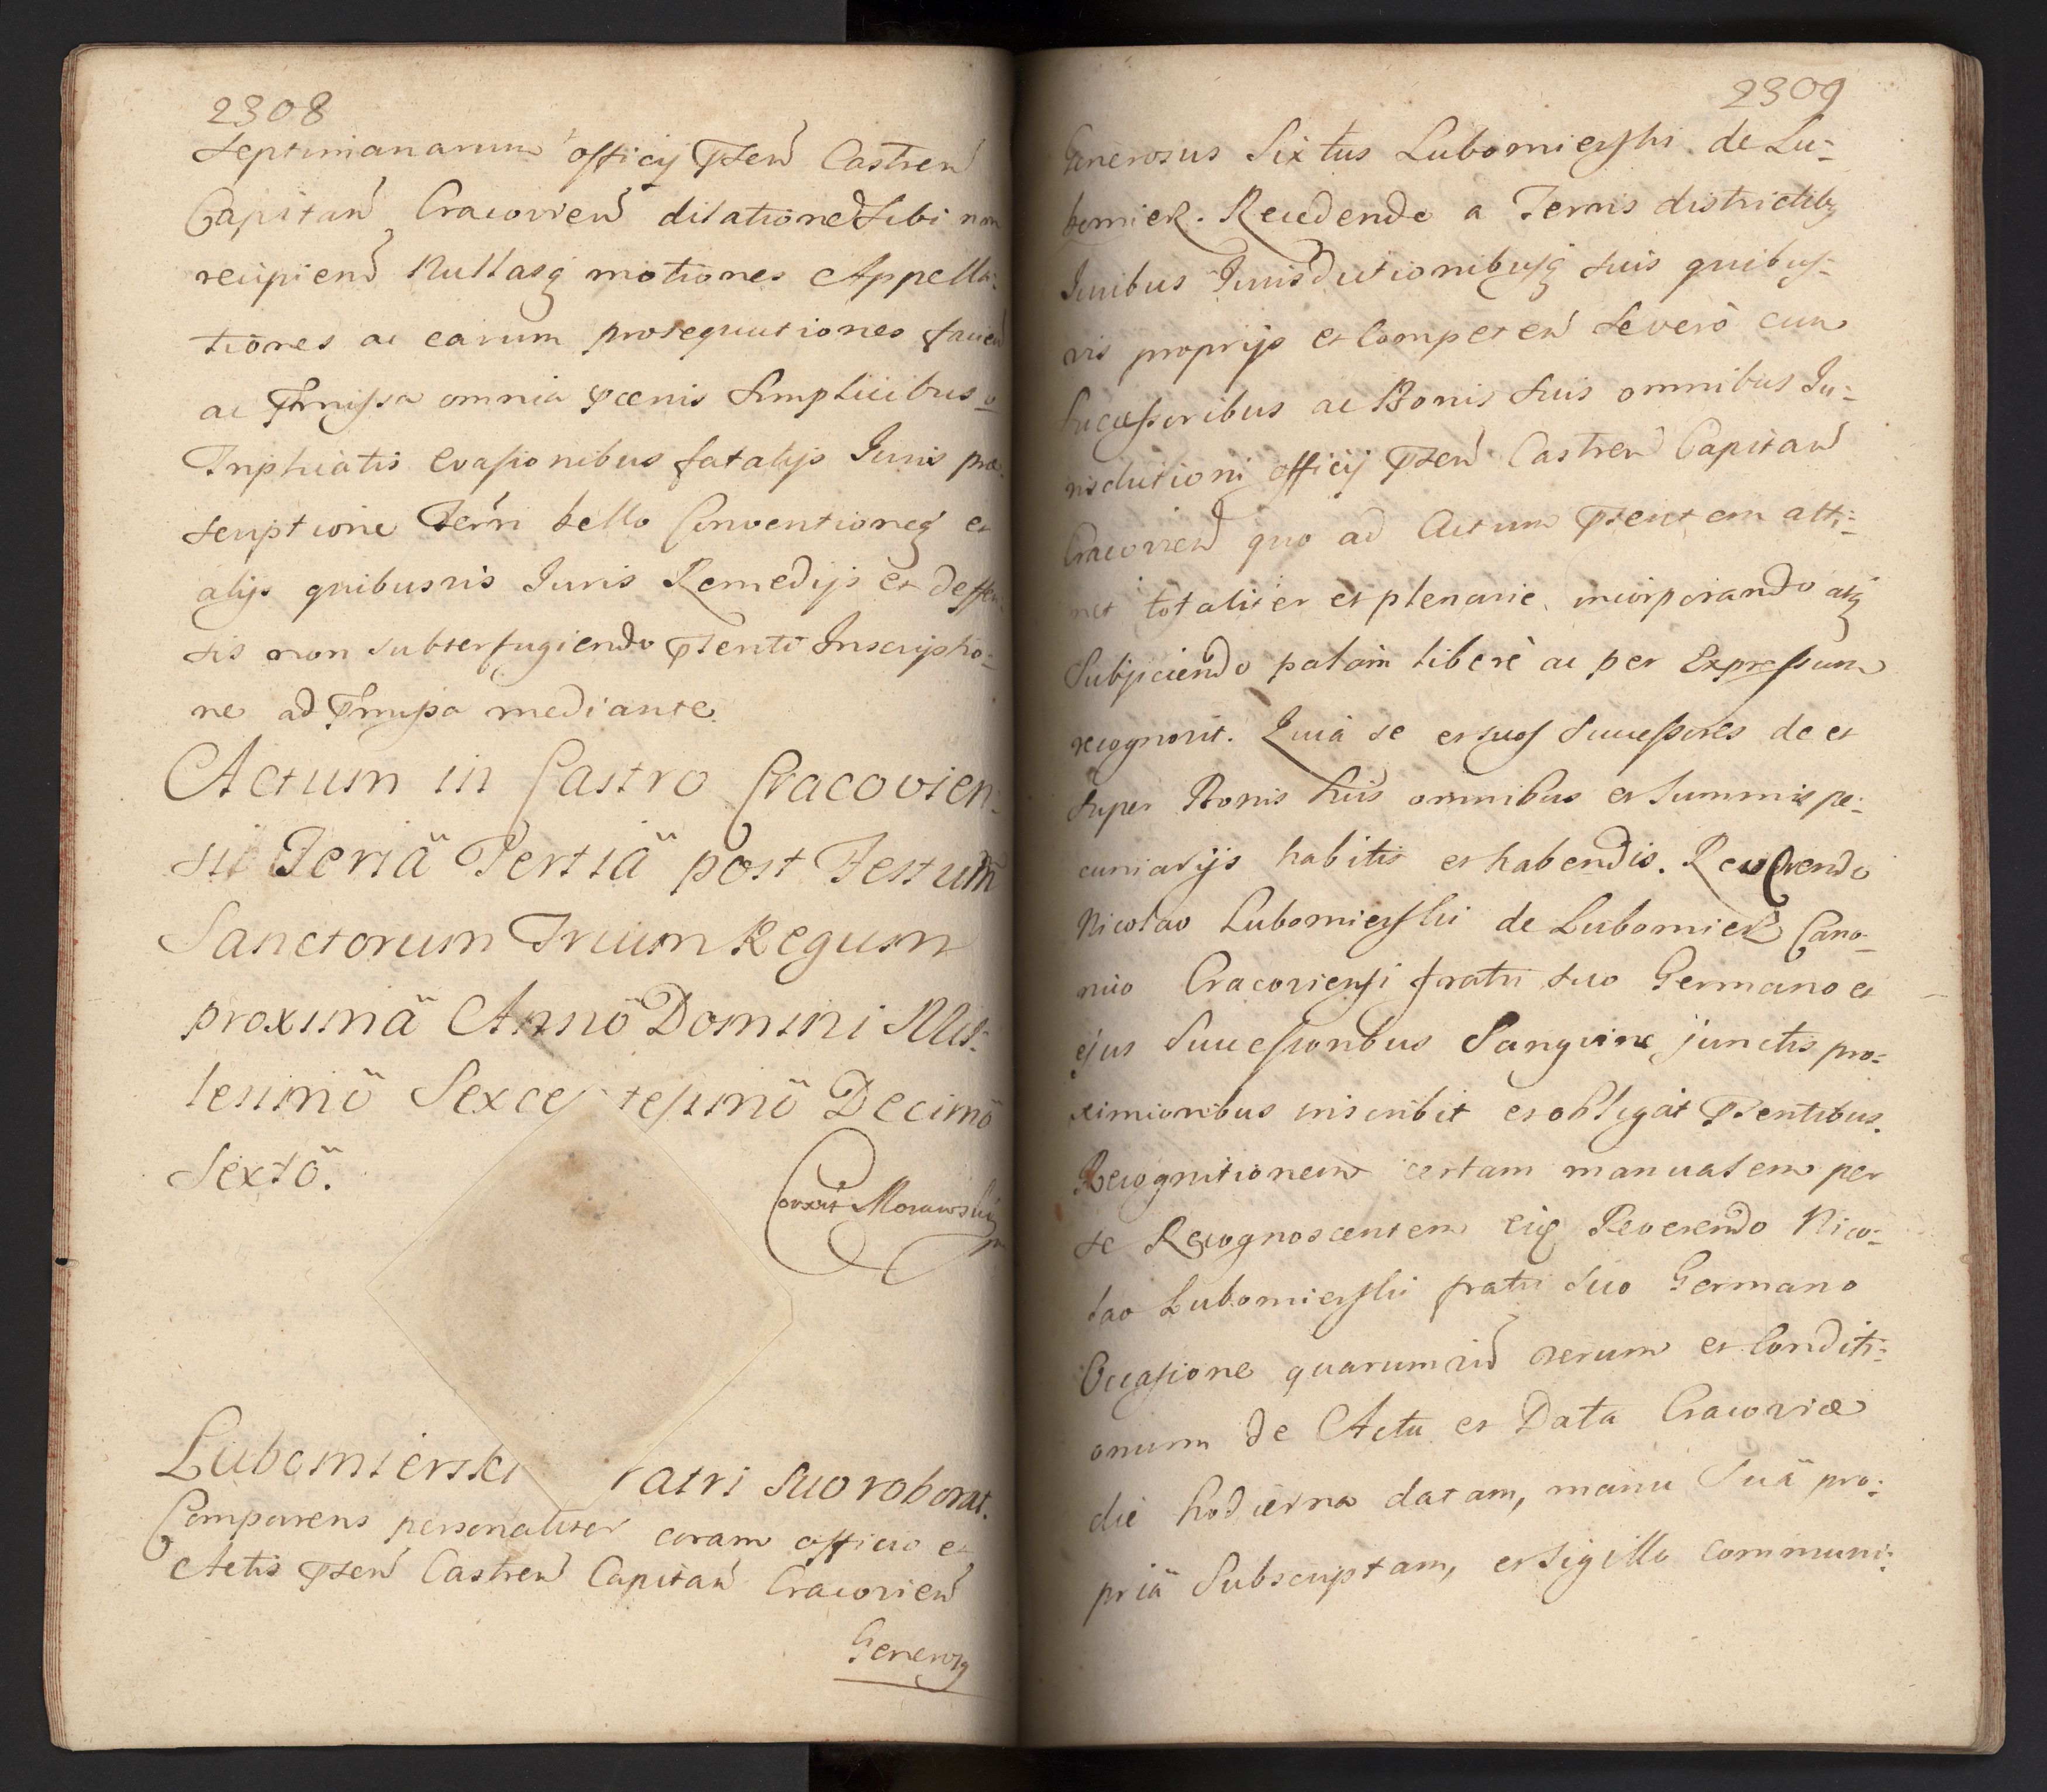 2308
Septimanarum officij pñsen Castren
Capitan Cracovien dilationeq sibi non
recipien Nullasq motiones Appella:
tiones ac earum prosequutiones facien
ac pmissa omnia pœnis simplicibus
Triplicatis evasionibus fatalijs Iuris præ
scriptione Terri bello Conventioneq et
alijs quibusvis Iuris Remedijs et deffen
sis non subterfugiendo pñsenti Inscriptio:
ne ad pmissa mediante.
Actum in Castro Cracovien:
si Feriä Tertiä post Festum
Sanctorum Trium Regum
proximä Annö Domini Mil:
lesimö Sexce tesimö Decimö
Sextö.
Corexit Morawski
Lubomierski ratri suo roborat.
Comparens personaliter coram officio et
Actis pñsen Castren Capitan Cracovien
Generosq
2309
Generosus Sixtus Lubomierski de Lu:
bomierz. Recedendo a Terris districtibq
Iuribus Iurisdictionibusq suis quibus:
vis proprijs et Competen Severò cum
Successoribus ac Bonis suis omnibus Iu:
risdictioni officij pñsen Castren Capitan
Cracovien quo ad Actum pñsentem atti:
net totaliter et plenarie incorporando atq
Subijciendo palàm liberè ac per Expressum
recognovit. Quia se et suos Successores de et
super Bonis suis omnibus et Summis pe:
cuniarijs habitis et habendis. Reverendo
Nicolao Lubomierski de Lubomierz Cano:
nico Cracoviensi fratri suo Germano et
ejus Successoribus Sanguine junctis pro:
ximioribus inscribit et obligat pñsentibus.
Recognitionem certam manualem per
se Recognoscentem eiq Reverendo Nico:
lao Lubomierski fratri suo Germano
Occasione quarumvis rerum et Conditi:
onum de Actu et Data Cracoviæ
die hodierna datam, manu Suä pro:
priä Subscriptam, et sigillo communi: